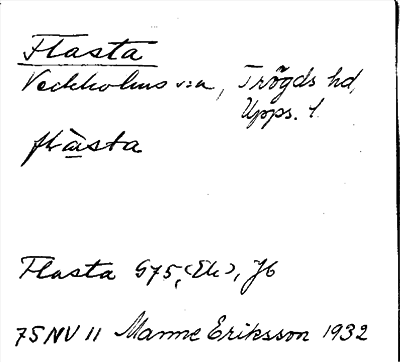 Flasta
Veckholms s:n, Trögds hd,
Upps. l.
flàsta
Flasta G75, (Ek), J6
75 NV 11 Manne Eriksson 1932